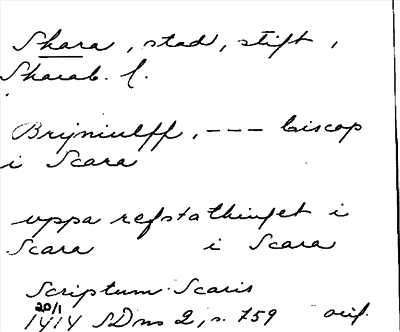 Skara, stad, stift,
Skarab. l.
Brijniulff, --- biscop
i Scara
uppa refsta thinget i
Scara i Scara
Scriptum Scaris
20/1 1414 SD ns 2, s. 759 orig.